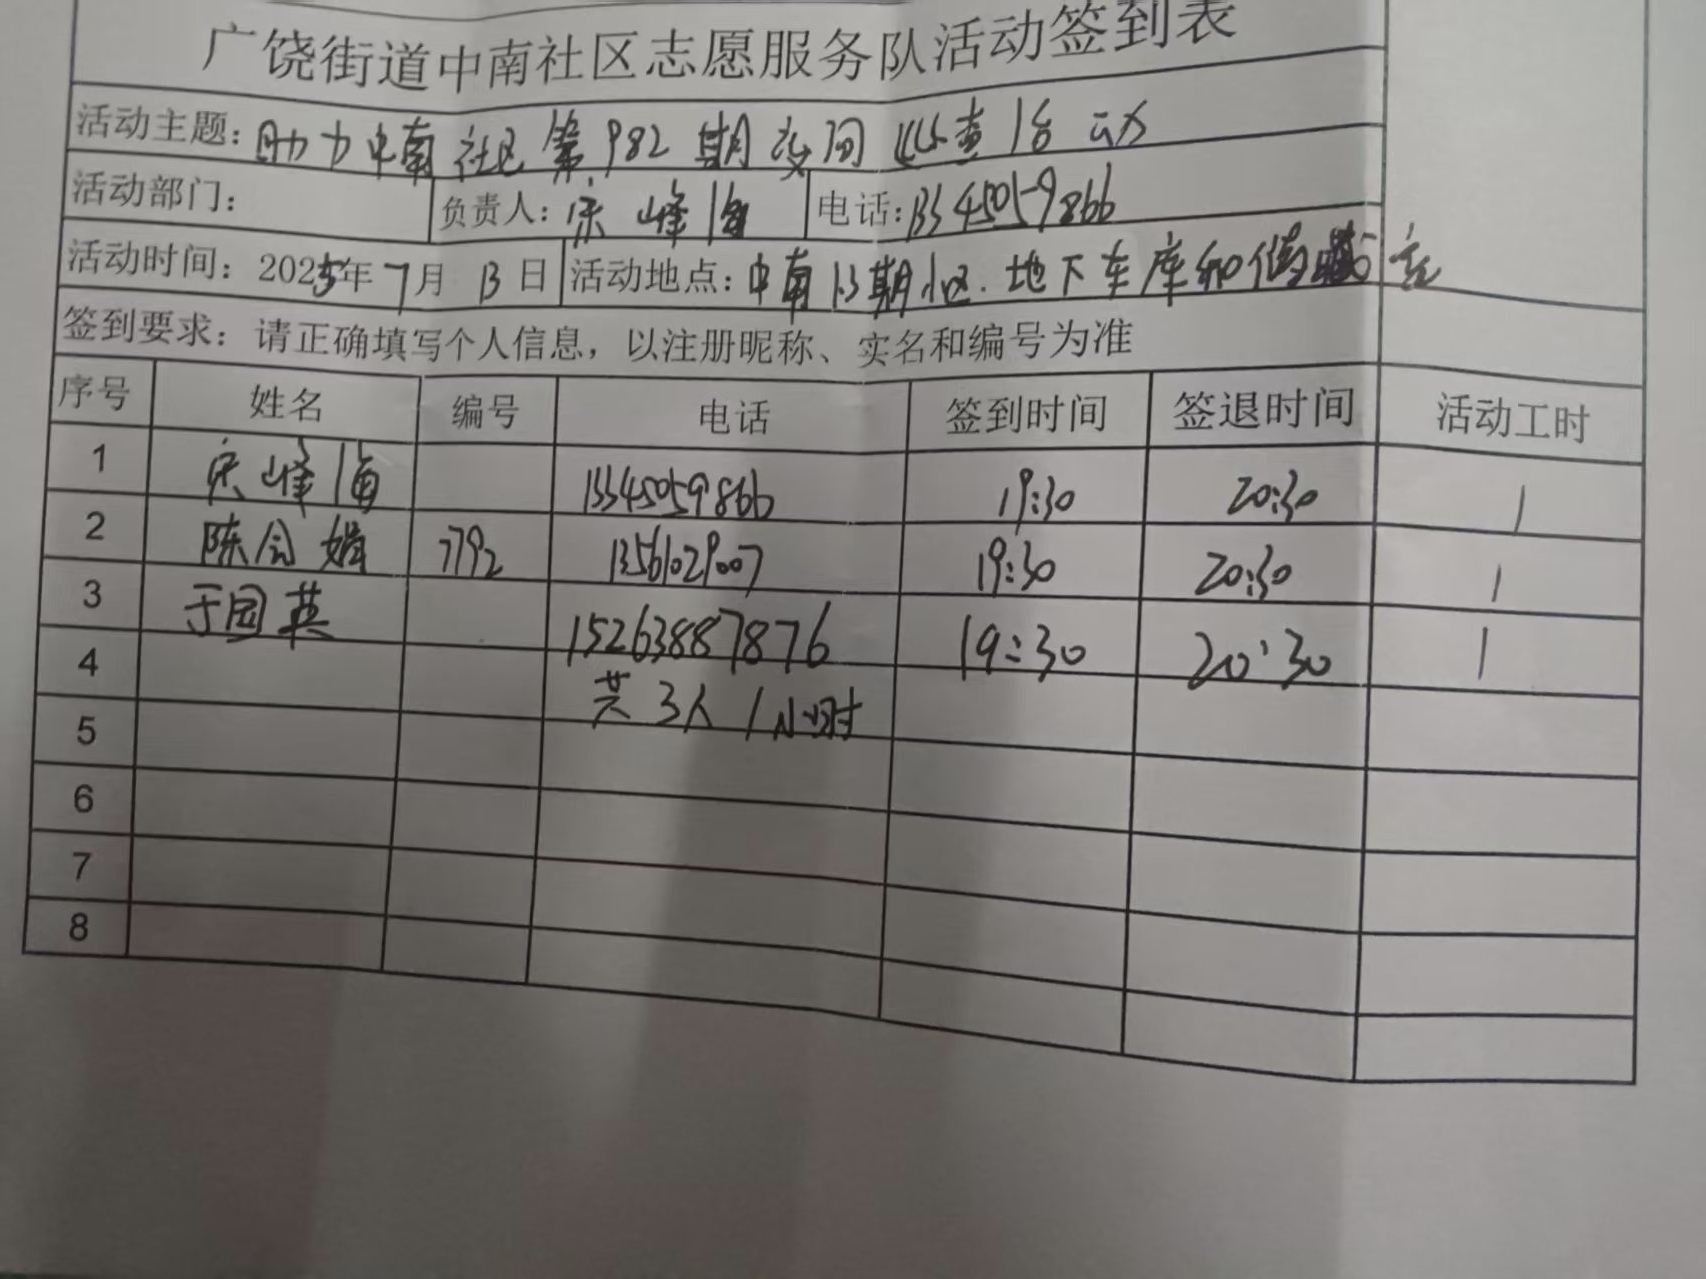 广饶街道中南社区志愿服务队活动签到表
活动主题：助力中南社区第982期夜间巡查活动
活动部门： 负责人：宋峰海 电话：13345059866
活动时间：2025年7月13日 活动地点：中南1.3期小区.地下车库和
签到要求：请正确填写个人信息，以注册昵称、实名和编号为准
序号 姓名 编号 电话 签到时间 签退时间 活动工时
1 宋峰海 13345059866 19:30 20:30 1
2 陈会娟 7792 13561029007 19:30 20:30 1
3 于国英 15263887876 19:30 20:30 1
4 共3人1小时
5
6
7
8